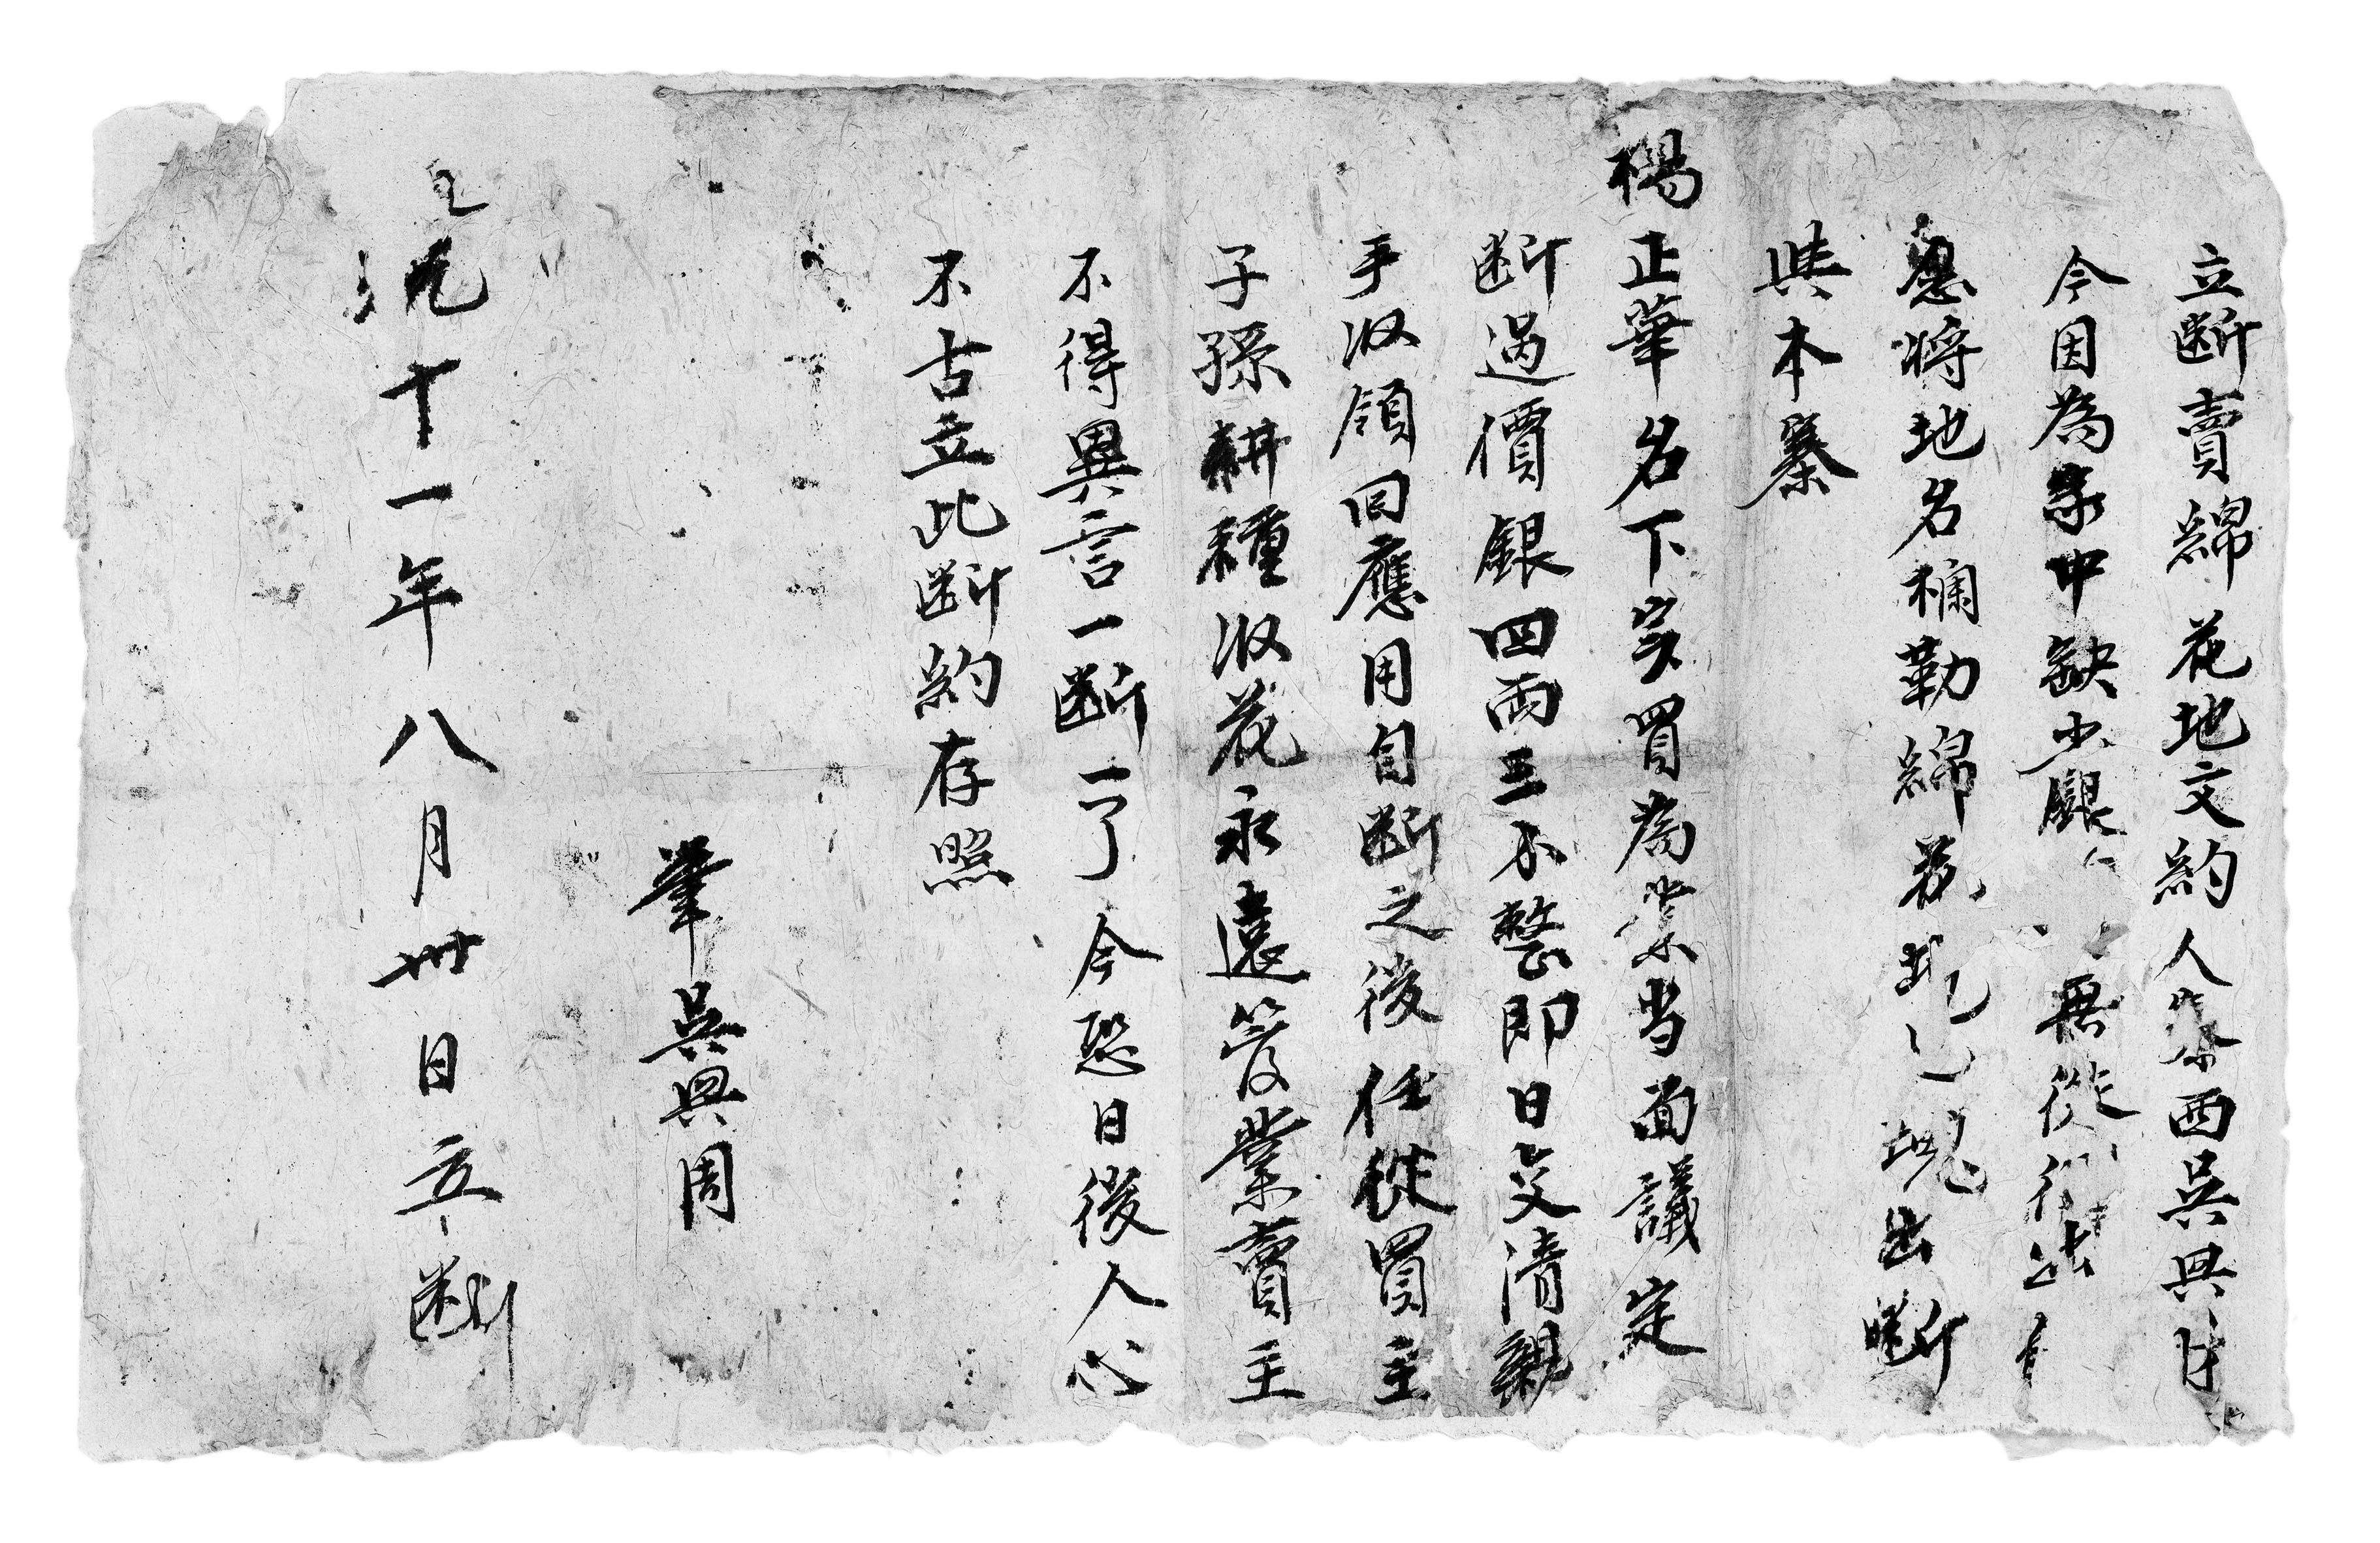 立断賣綿花地文約人寨西吳興
今因為家中缺少銀 無從
愿将地名欄勒綿花地一塊出断
與本寨
楊正華名下実買為業当面議定
断過價銀四両三小整即日交清親
手収領回應用自断之後任從買主
子孫耕種収花永遠管業賣主
不得異言一断一了今恐日後人心
不古立此断約存照
筆吳興周
元十一年八月卅日立断